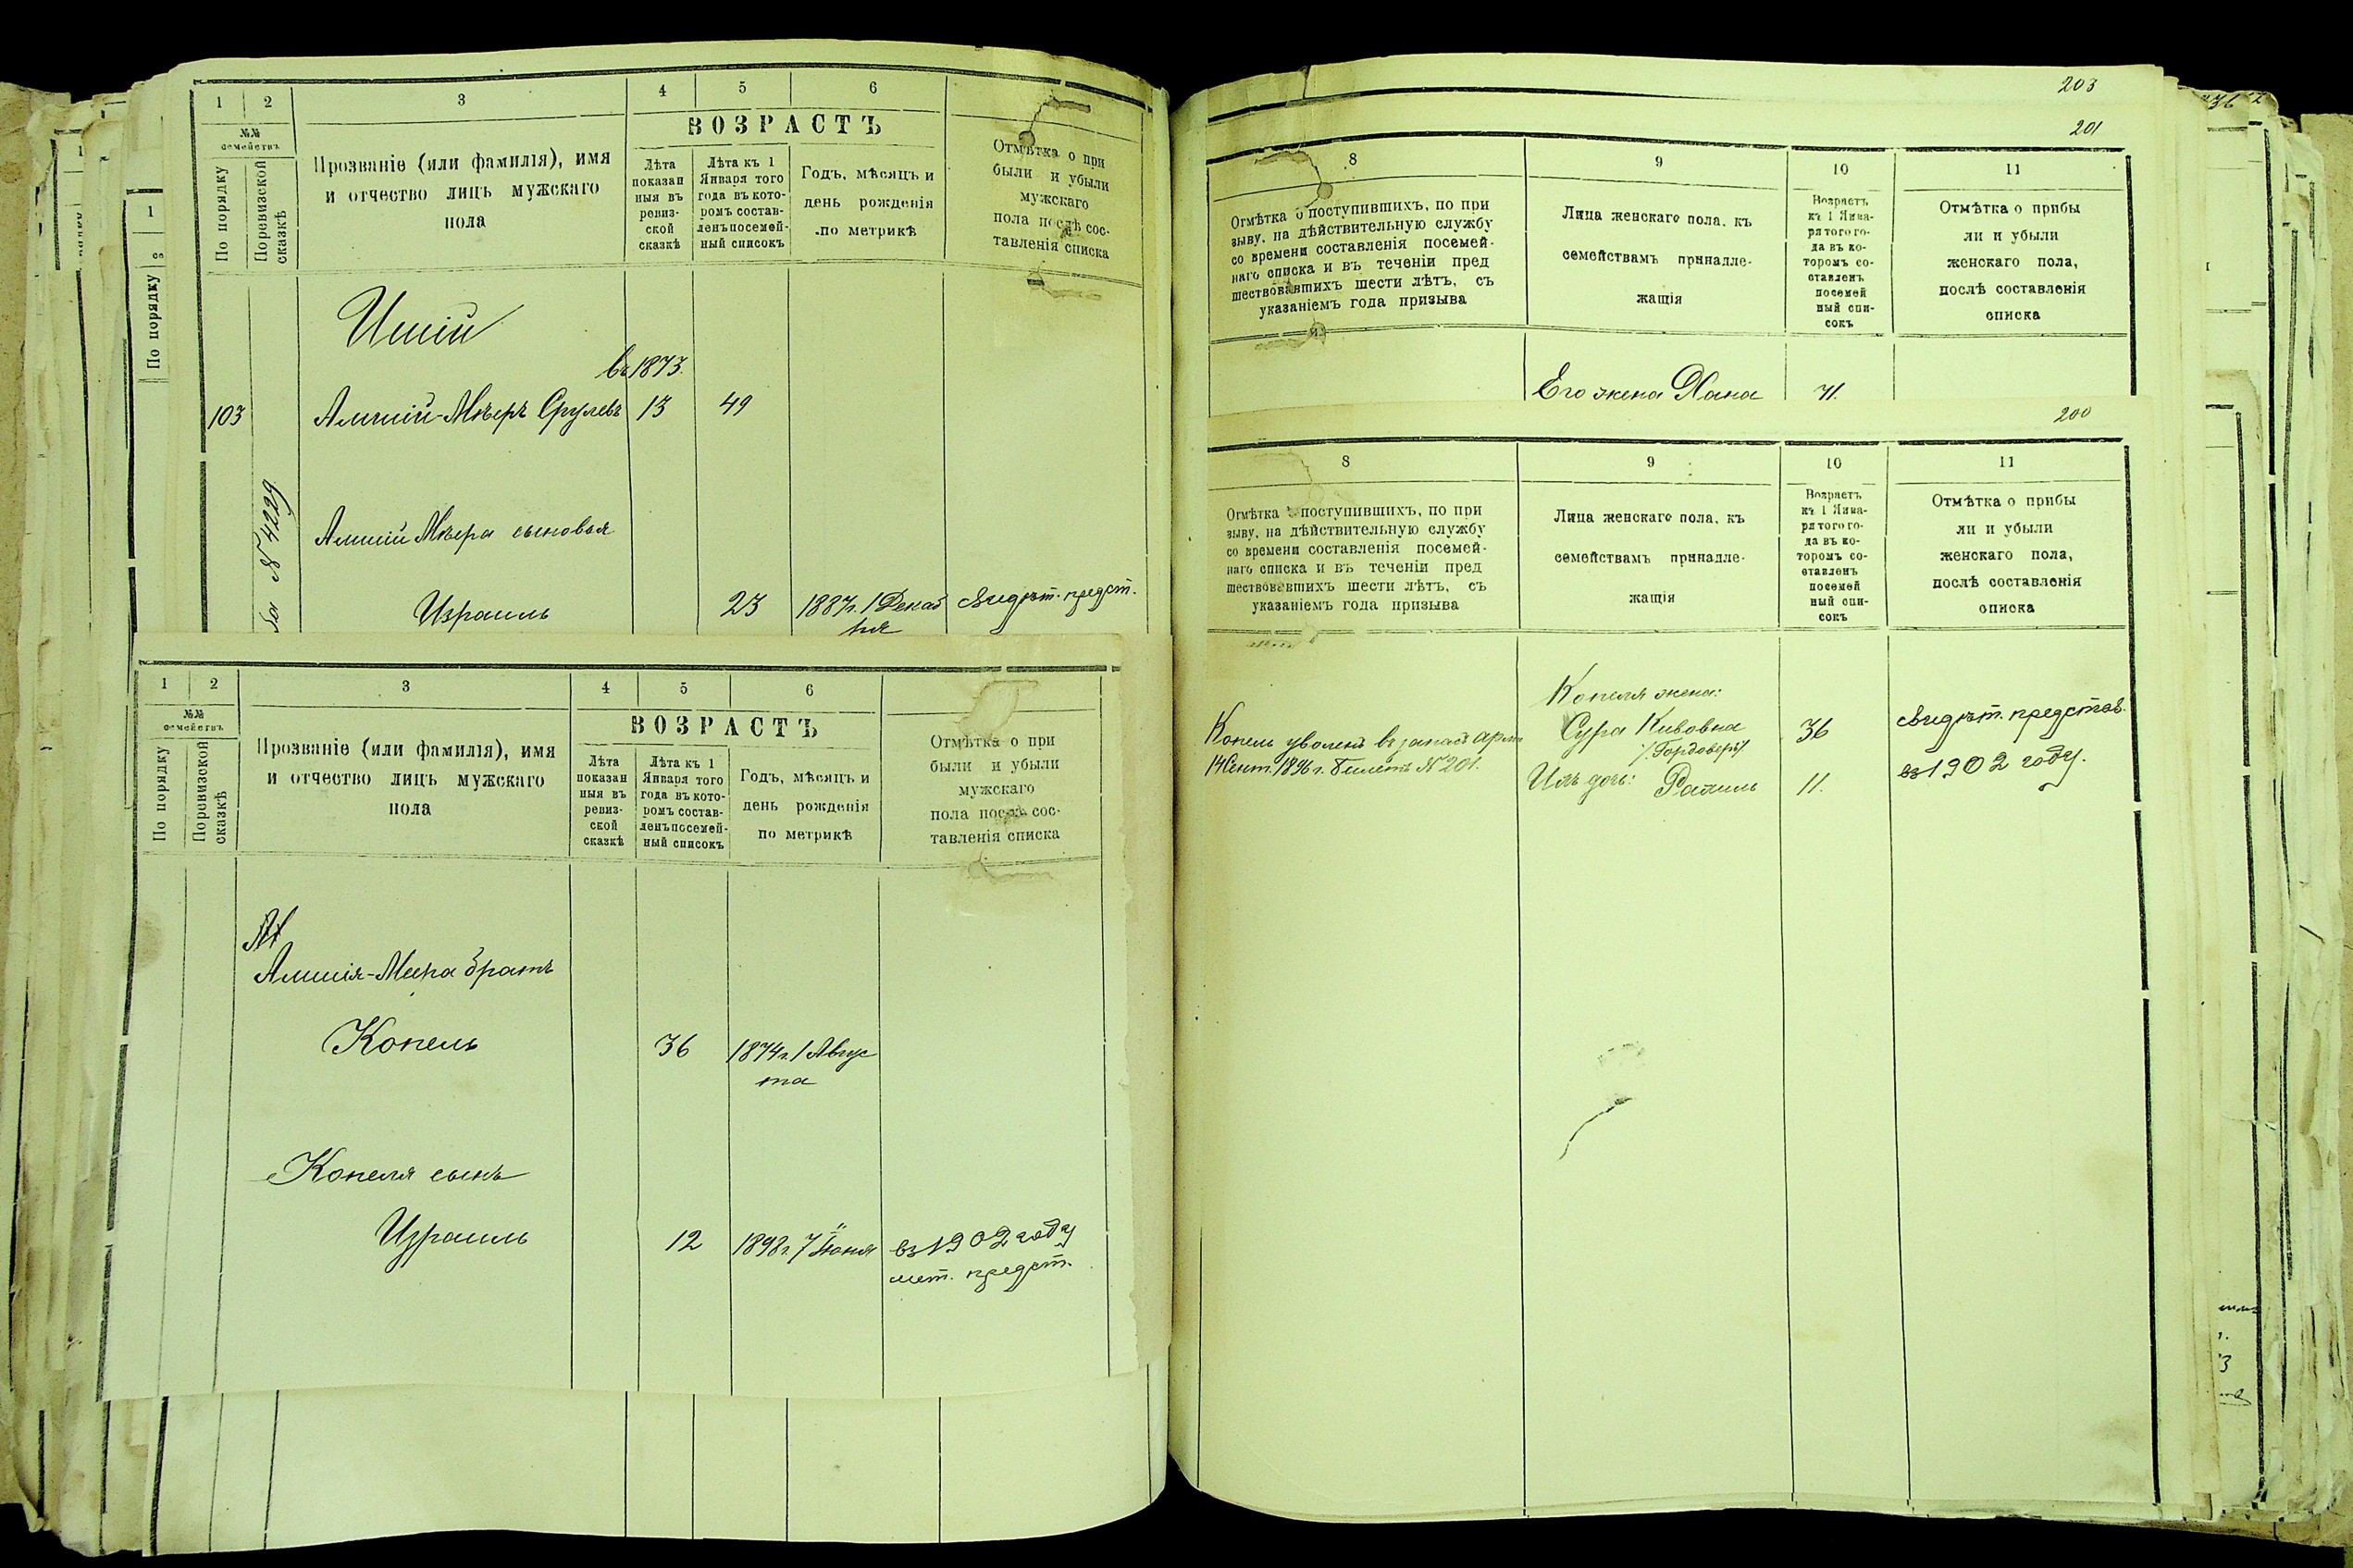 1 2 3 4 5 6
ВОЗРАСТЪ
№№
семействъ
По порядку
По ревизской
сказкѣ
Прозваніе (или фамилія), имя
и отчество лицъ мужскаго
пола
Лѣта
показан
ныя въ
ревиз-
ской
сказкѣ
Лѣта къ 1
Января того
года въ кото-
ромъ состав-
ленъ посемей-
ный списокъ
Годъ, мѣсяцъ и
день рожденія
по метрикѣ
Отмѣтка о при
были и убыли
мужскаго
пола послѣ сос-
тавленія списка
въ 1873.
103 Амшій-Мѣеръ Срулевъ 13 49
№ 4229
Амшій Мѣера сыновья
Израиль 23 1887г. 1 Декаб свидѣт. предст.
ря
1 2 3 4 5 6
ВОЗРАСТЪ
№№
семействъ
По порядку
По ревизской
сказкѣ
Прозваніе (или фамилія), имя
и отчество лицъ мужскаго
пола
Лѣта
показан
ныя въ
ревиз-
ской
сказкѣ
Лѣта къ 1
Января того
года въ кото-
ромъ состав-
ленъ посемей-
ный списокъ
Годъ, мѣсяцъ и
день рожденія
по метрикѣ
Отмѣтка о при
были и убыли
мужскаго
пола послѣ сос-
тавленія списка
Амшія-Меера братъ
Копель 36 1874г. 1 Авгус
та
Копеля сынъ
Израиль 12 1898г. 7 Іюня въ 1902 году
мет. предст.
1
По порядку
203
201
8 9 10 11
Отмѣтка о поступившихъ, по при
зыву, на дѣйствительную службу
со времени составленія посемей-
наго списка и въ теченіи пред
шествовавшихъ шести лѣтъ, съ
указаніемъ года призыва
Лица женскаго пола, къ
семействамъ принадле-
жащія
Возрастъ
къ 1 Янва-
ря того го-
да въ ко-
торомъ со-
ставленъ
посемей
ный спи-
сокъ
Отмѣтка о прибы
ли и убыли
женскаго пола,
послѣ составленія
списка
Его жена Хана 41.
200
8 9 10 11
Отмѣтка о поступившихъ, по при
зыву, на дѣйствительную службу
со времени составленія посемей-
наго списка и въ теченіи пред
шествовавшихъ шести лѣтъ, съ
указаніемъ года призыва
Лица женскаго пола, къ
семействамъ принадле-
жащія
Возрастъ
къ 1 Янва-
ря того го-
да въ ко-
торомъ со-
ставленъ
посемей
ный спи-
сокъ
Отмѣтка о прибы
ли и убыли
женскаго пола,
послѣ составленія
списка
Копеля жена:
Копель уволенъ въ запасъ арміи Сура Кивовна 36 свидѣт. представ.
/Гордоверъ/
14 Сент. 1896 г. билетъ № 201. Ихъ дочь: Рахиль 11. въ 1902 году.